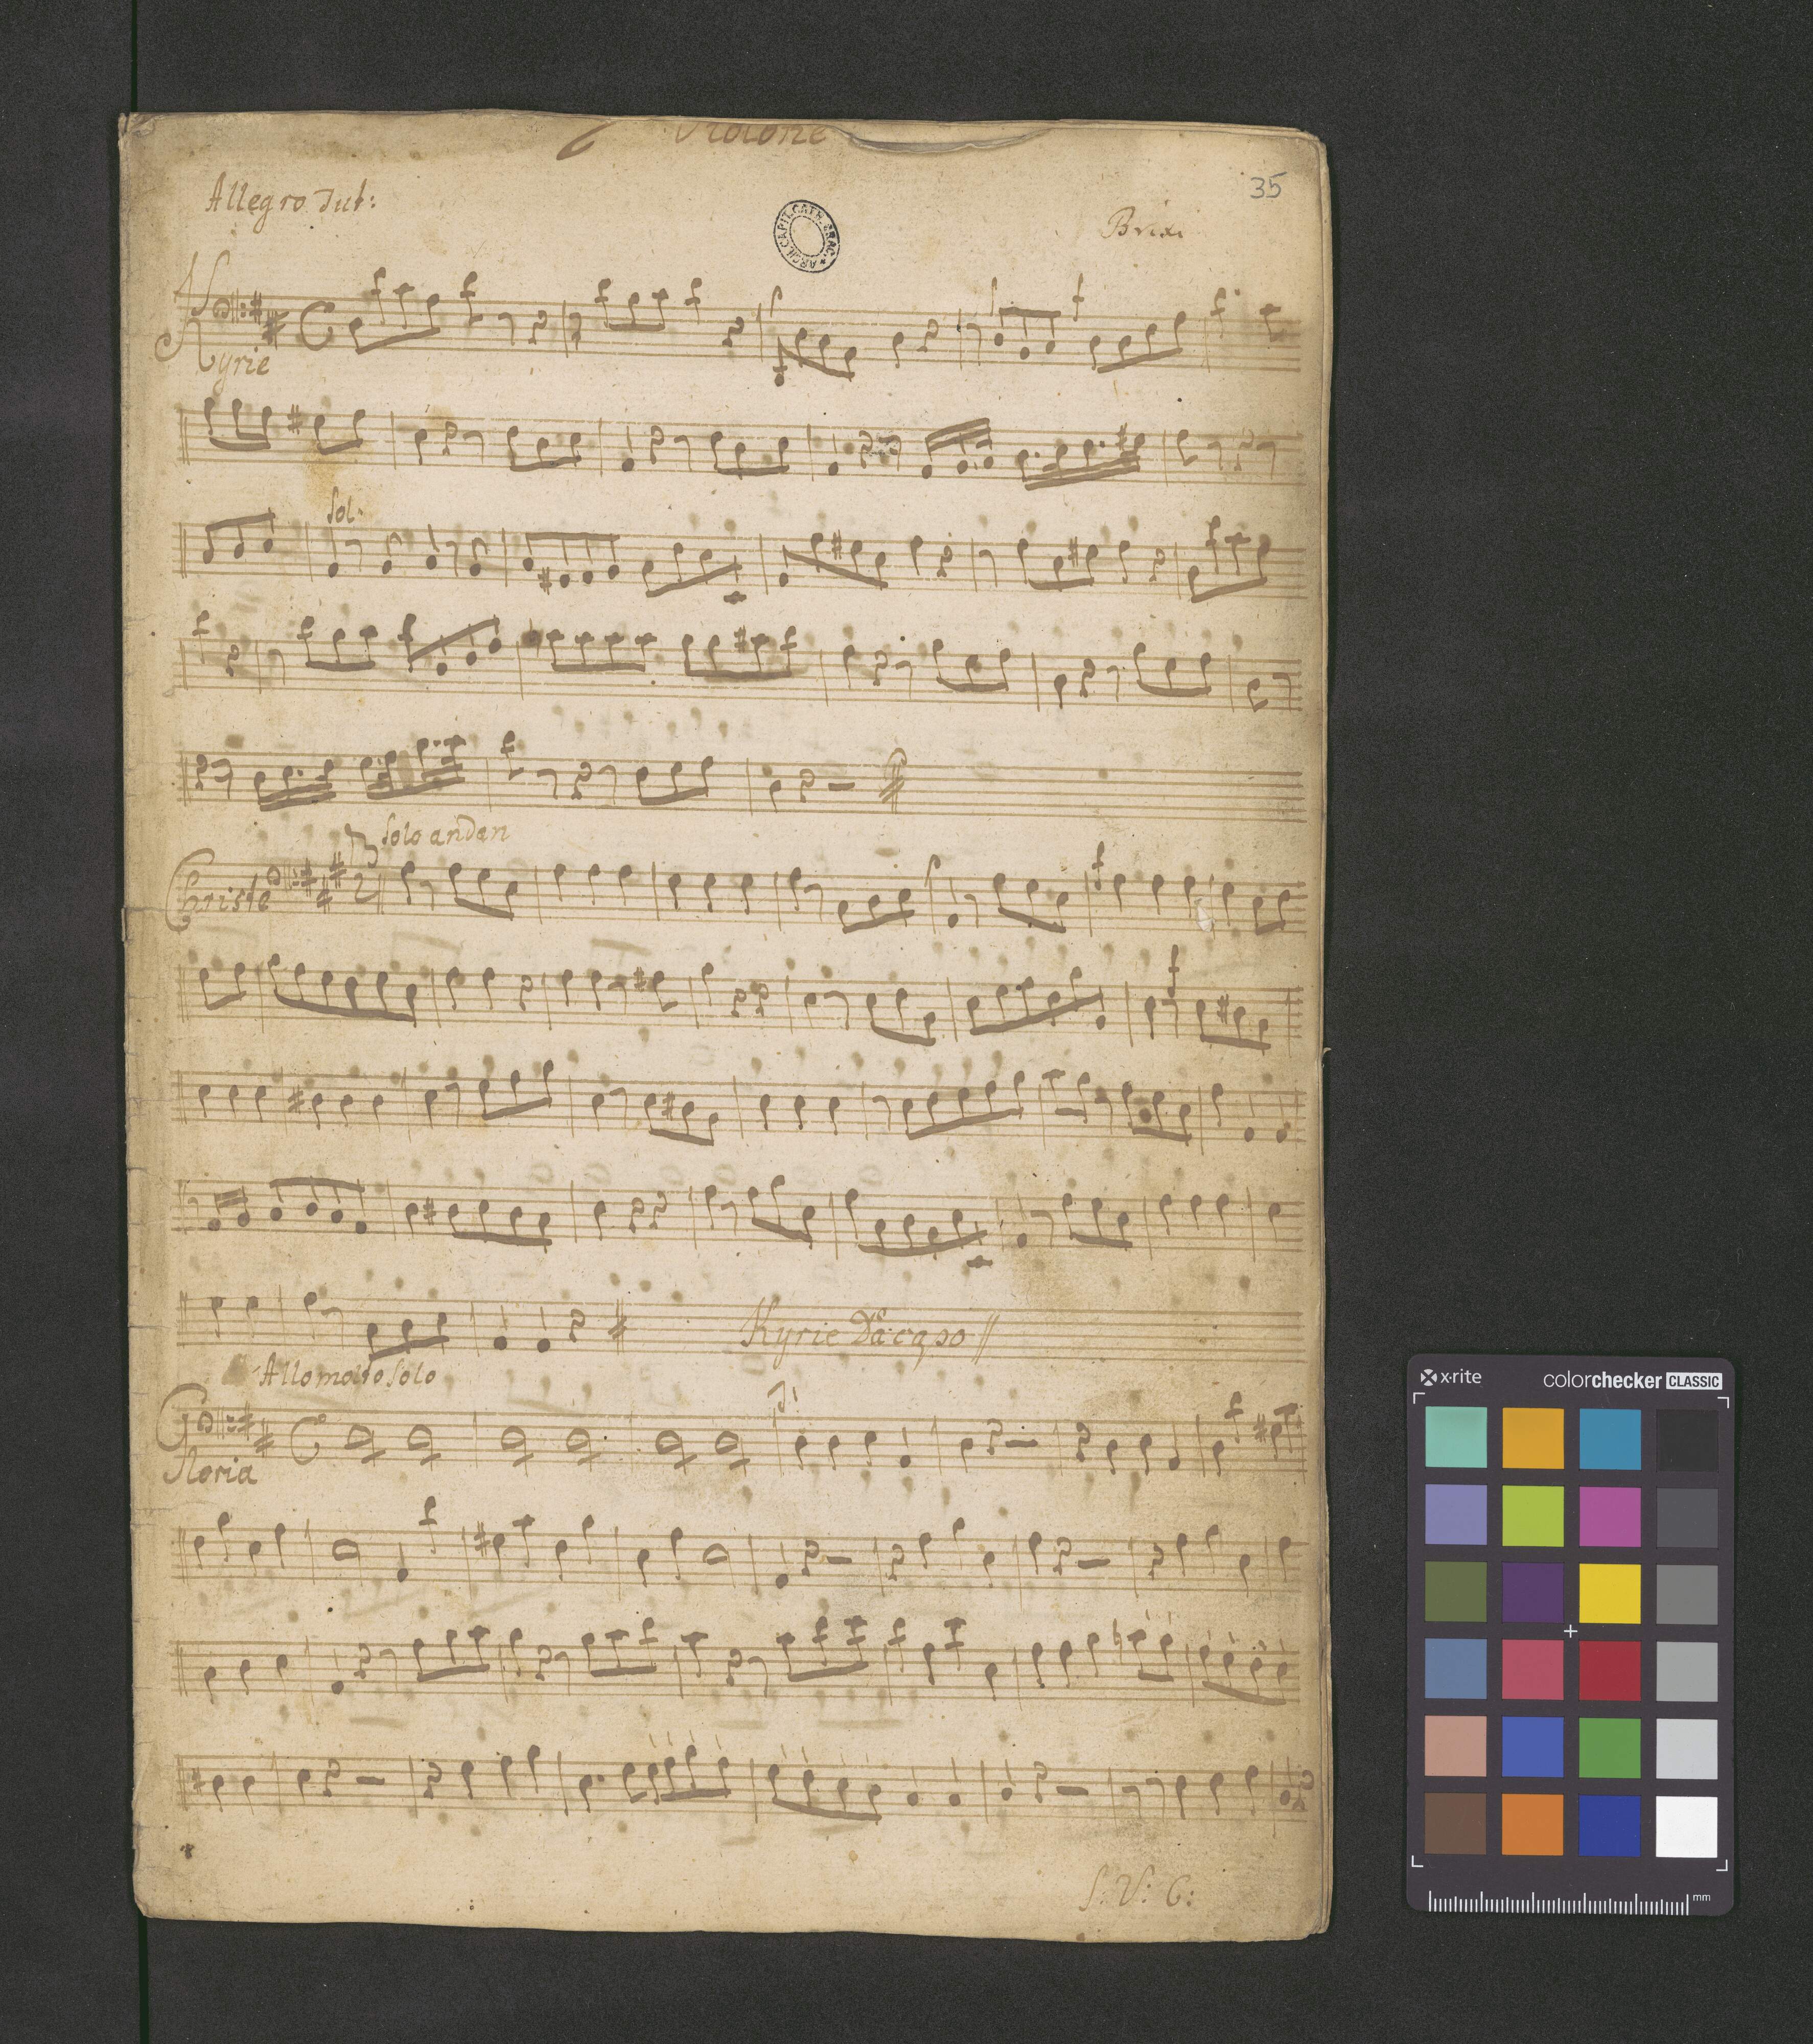 Violone
35
Allegro Tut:
Brixi
ARCH. CAPIT. CATH. CRAC.
Kyrie
Sol.
Solo andan
Christe
Kyrie Da capo //
Allo molto Solo
T:
Gloria
S: V: C:
x-rite
colorchecker CLASSIC
mm